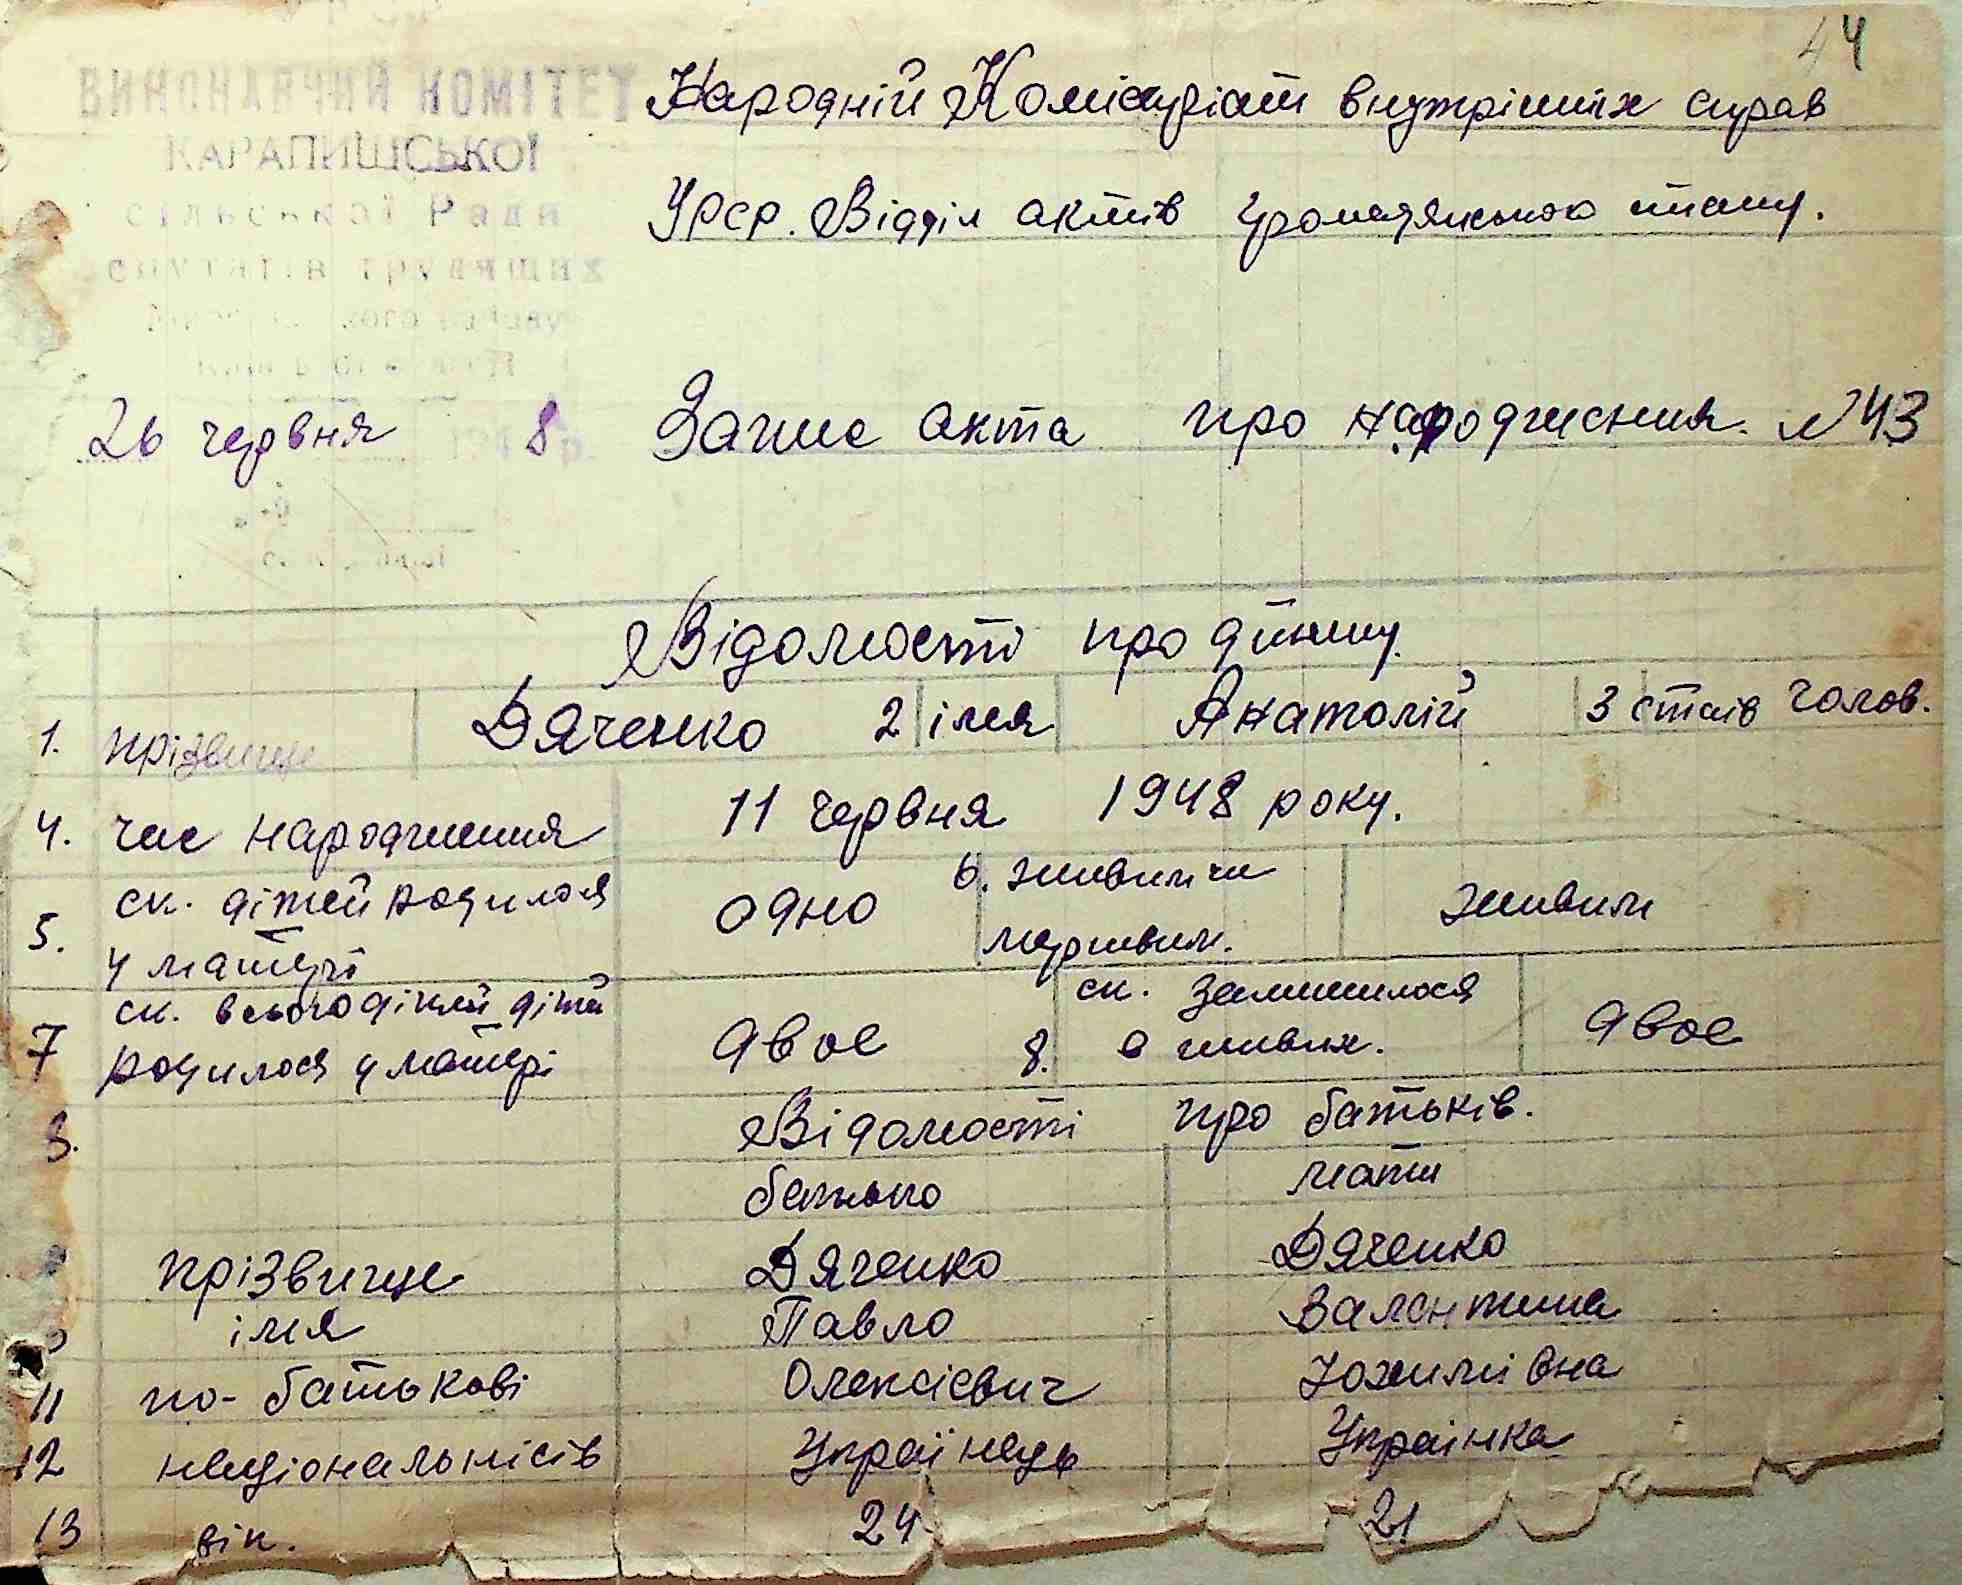 44
ВИКОНАВЧИЙ КОМІТЕТ
КАРАПИШСЬКОЇ
сільської Ради
трудящих
Народній Комісаріат внутрішніх справ
УРСР. Відділ актів громадянського стану.
26 червня 1948 р.
Запис акта про народження. №43
Відомості про дитину.
1. прізвище Дяченко 2 імя Анатолій 3 стать Чолов.
4. час народження 11 червня 1948 року.
5. ск. дітей родилося у матері одно 6. живим чи мертвим. живим
7 ск. всього дітей родилося у матері двое 8. ск. залишилося в живих. двое
Відомості про батьків.
батько мати
прізвище Дяченко Дяченко
імя Павло Валентина
11 по-батькові Олексієвич Юхимівна
12 національність Українець Українка
13 вік. 24 21